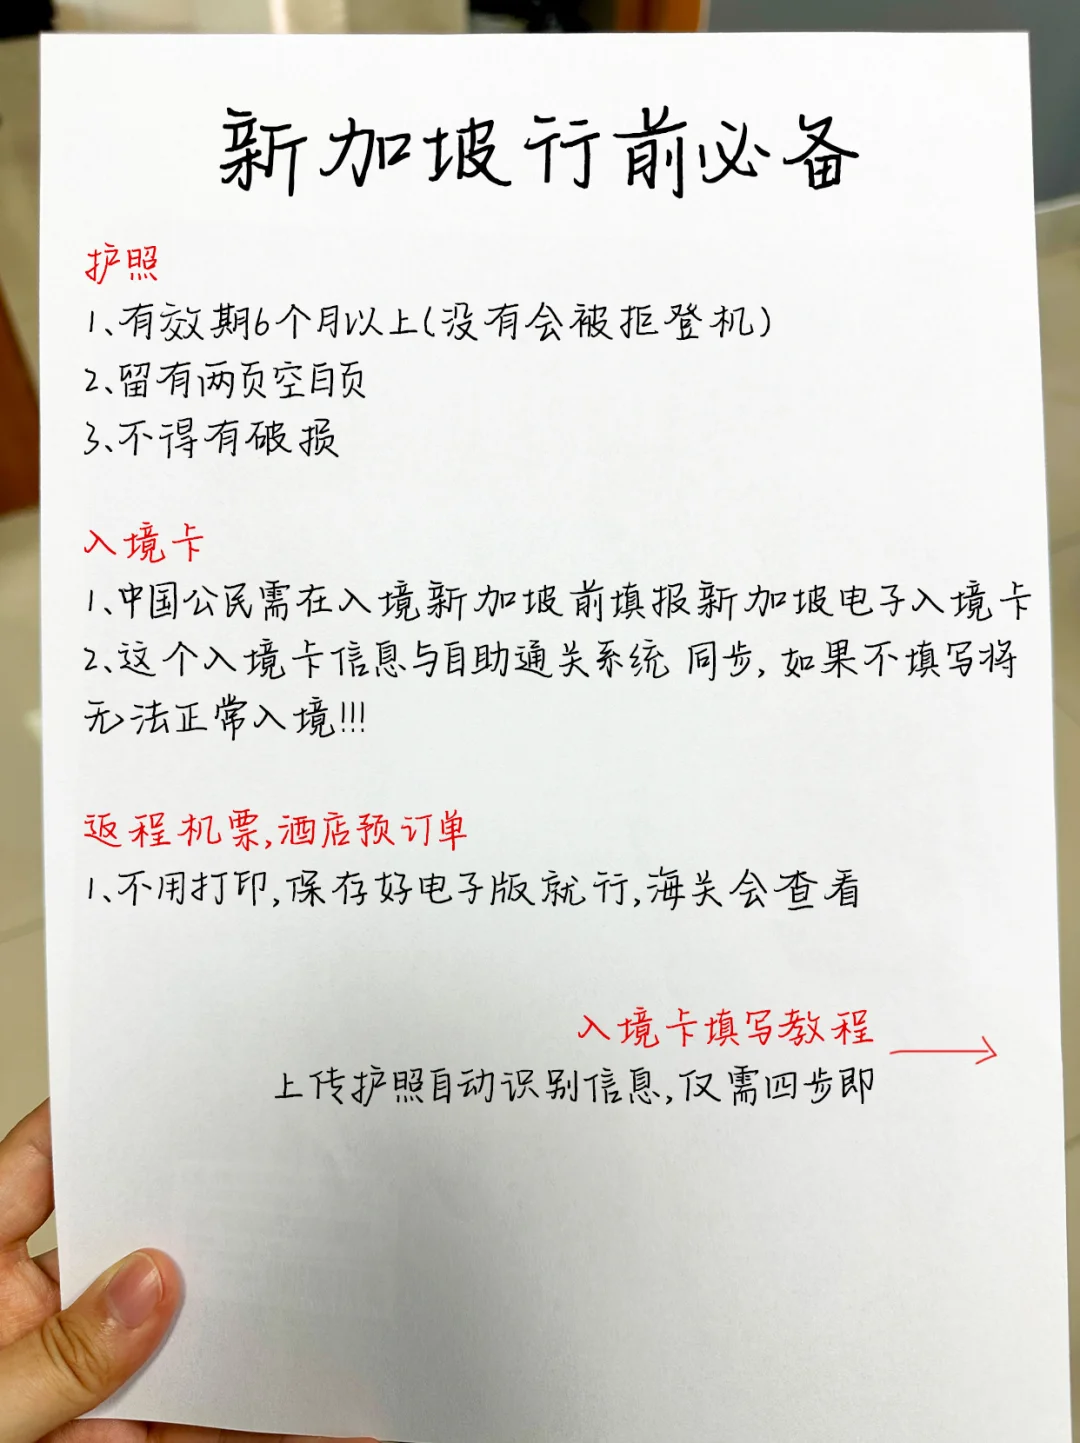 新加坡行前必备
护照
1、有效期6个月以上(没有会被拒登机)
2、留有两页空白页
3、不得有破损
入境卡
1、中国公民需在入境新加坡前填报新加坡电子入境卡
2、这个入境卡信息与自助通关系统同步,如果不填写将
无法正常入境!!!
返程机票,酒店预订单
1、不用打印,保存好电子版就行,海关会查看
入境卡填写教程
上传护照自动识别信息,仅需四步即